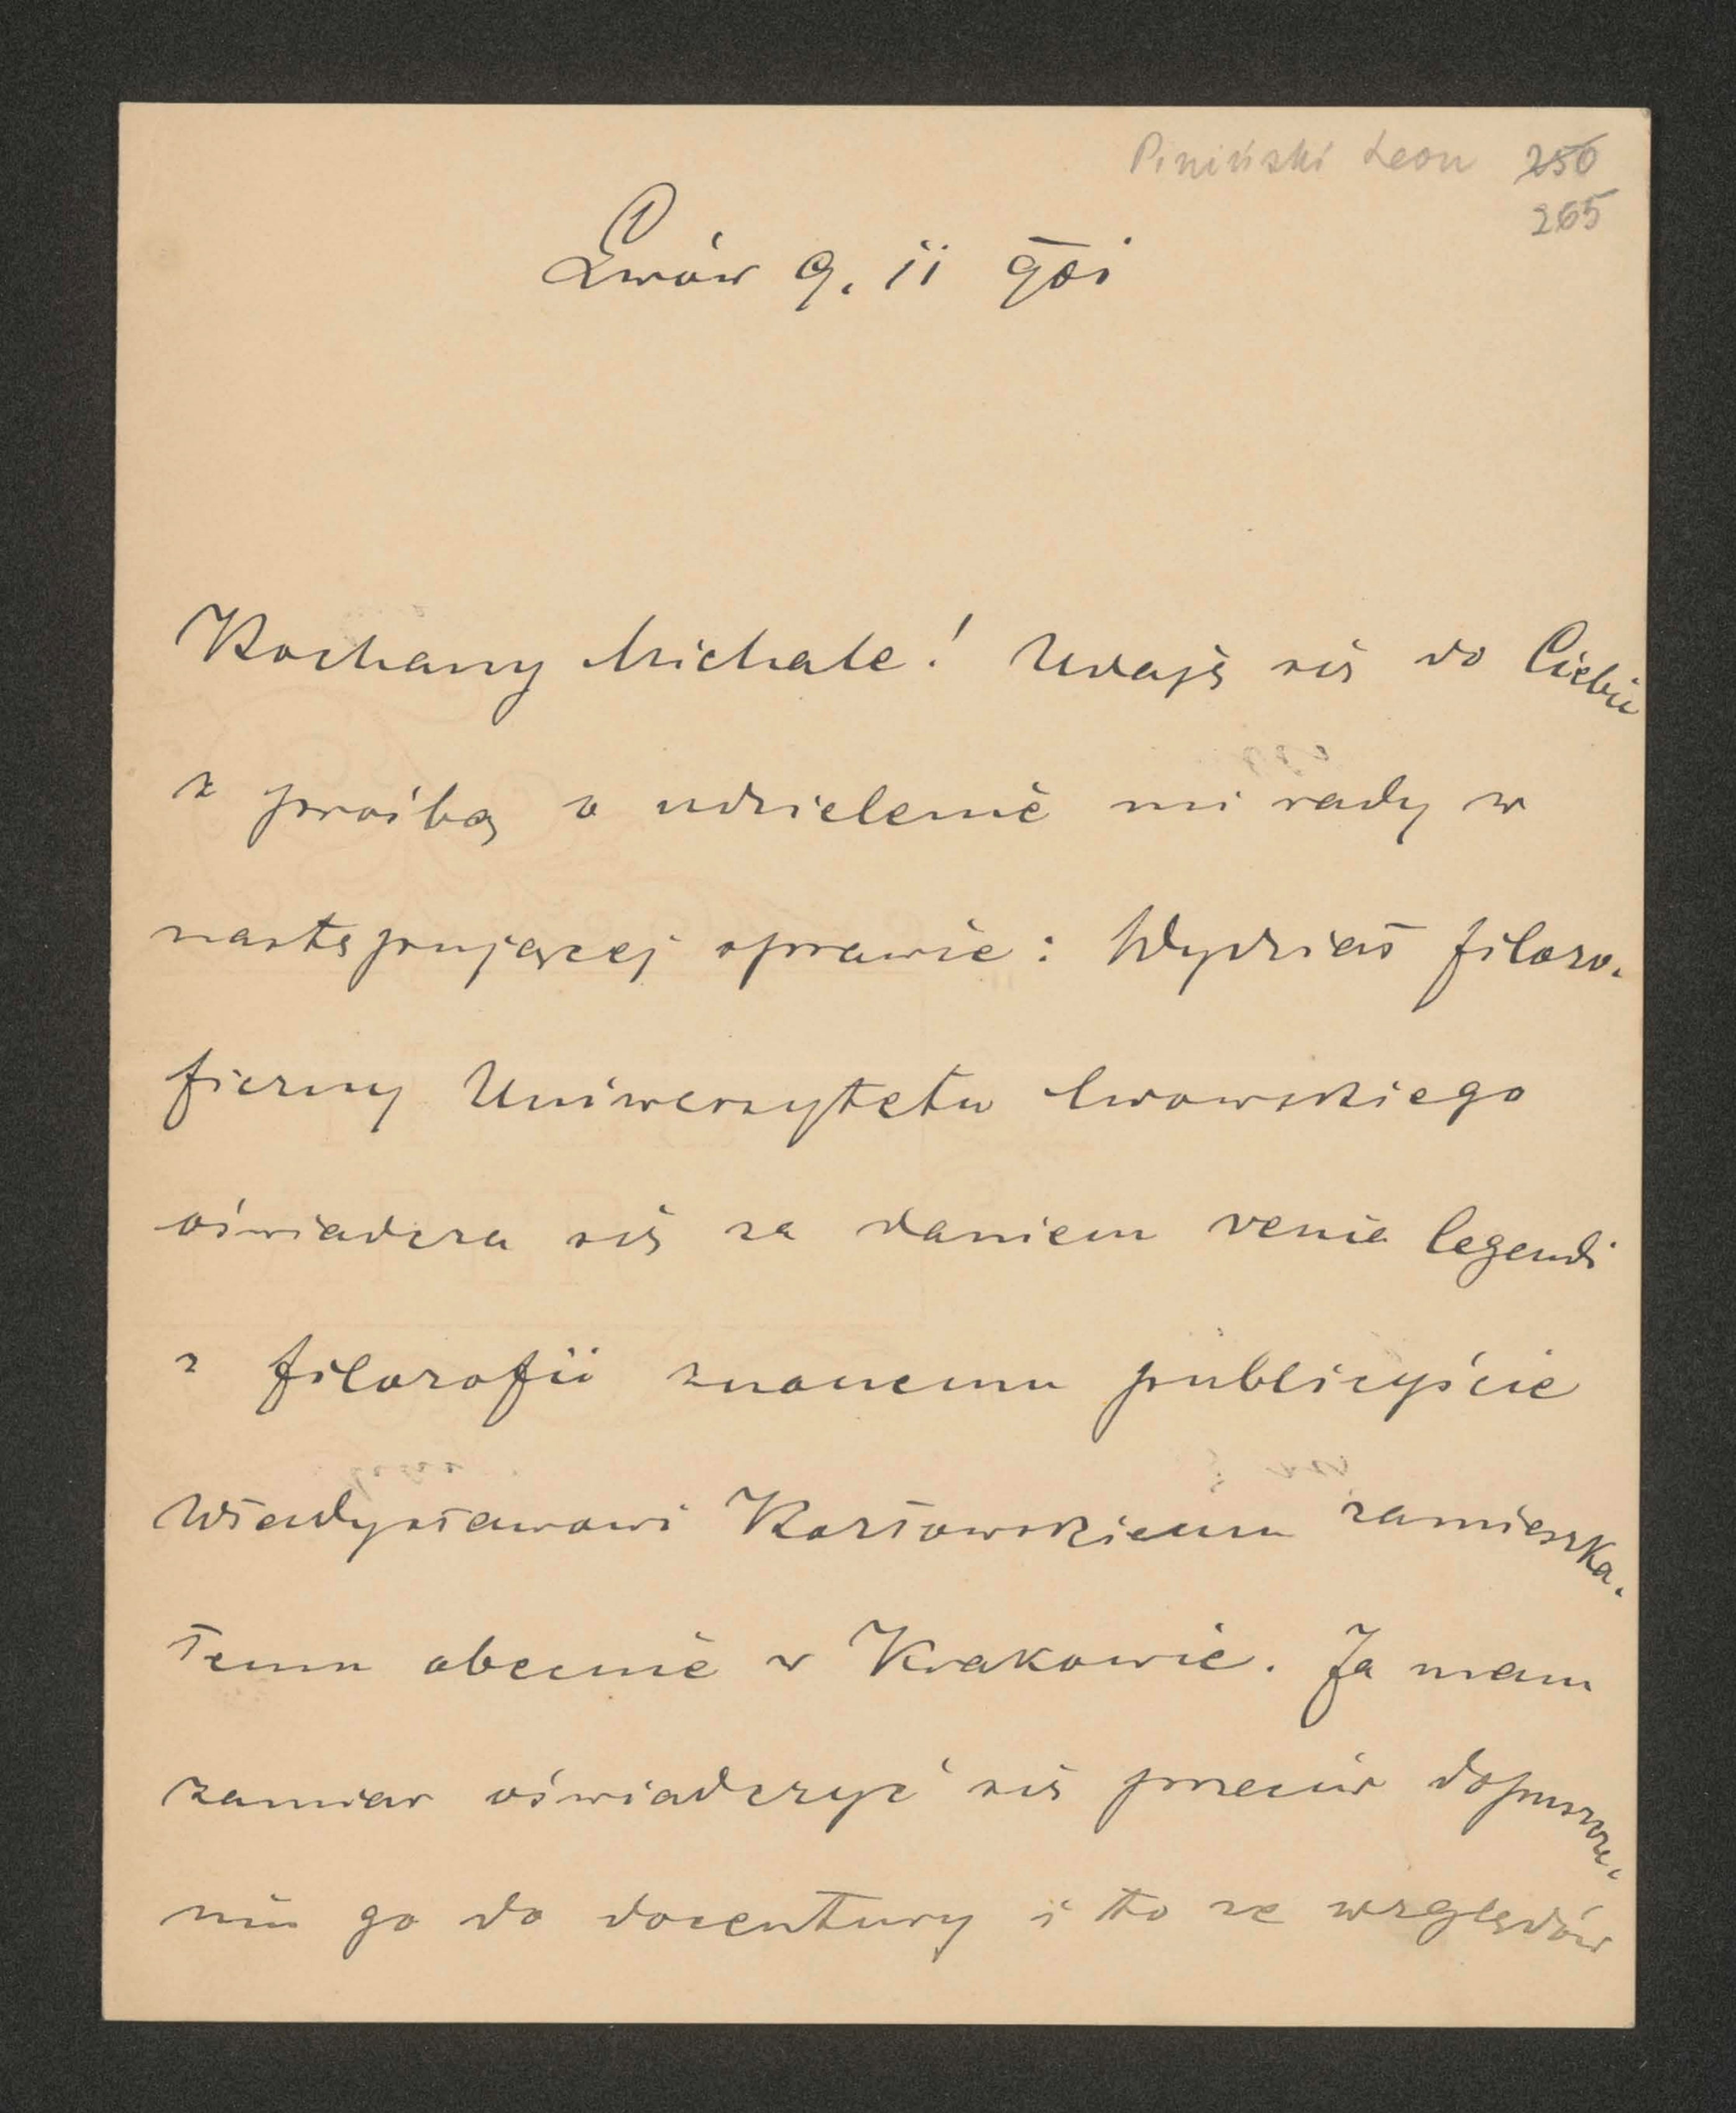 Piniński Leon 250
265
Lwów 9. ii 901
Kochany Michale! Udaję się do Ciebie
z prośbą o udzielenie mi rady w
następującej sprawie: Wydział filozo-
ficzny Uniwersytetu lwowskiego
oświadcza się za daniem venia legendi
z filozofii znanemu publicyście
Władysławowi Kozłowskiemu zamieszka-
łemu obecnie w Krakowie. Ja mam
zamiar oświadczyć się przeciw dopuszcze-
niu go do docentury i to ze względów